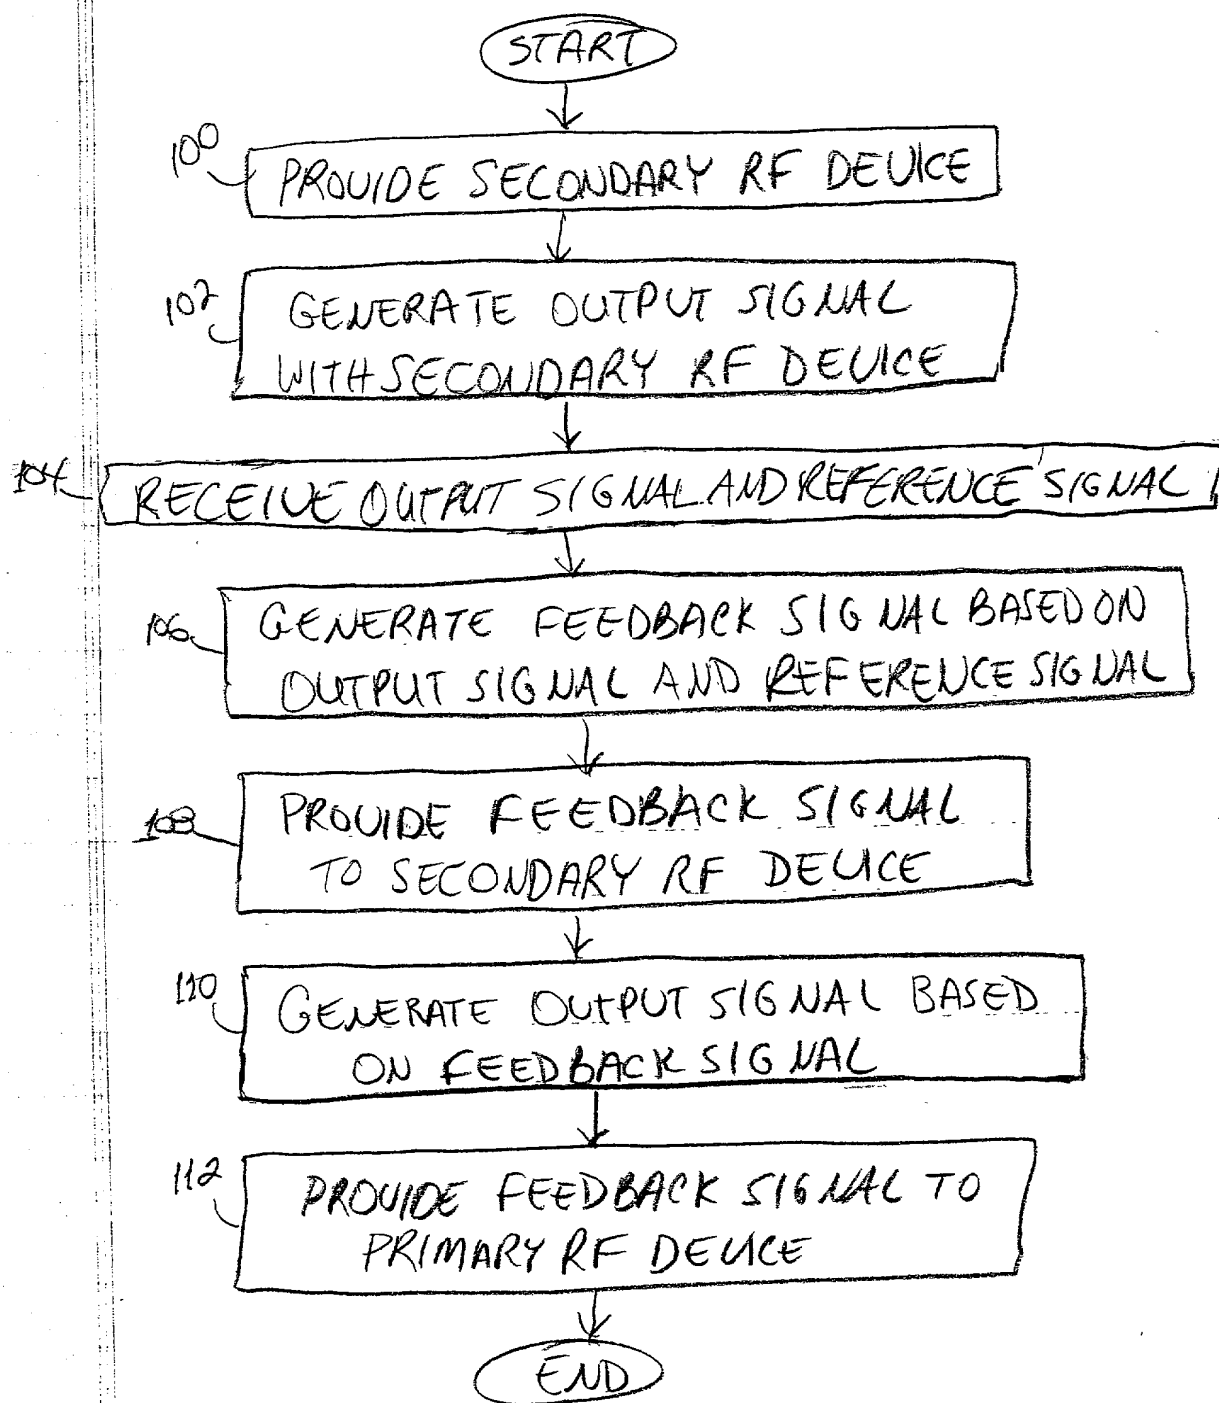 START
100
PROVIDE SECONDARY RF DEVICE
102
GENERATE OUTPUT SIGNAL
WITH SECONDARY RF DEVICE
104
RECEIVE OUTPUT SIGNAL AND REFERENCE SIGNAL
106
GENERATE FEEDBACK SIGNAL BASED ON
OUTPUT SIGNAL AND REFERENCE SIGNAL
108
PROVIDE FEEDBACK SIGNAL
TO SECONDARY RF DEVICE
110
GENERATE OUTPUT SIGNAL BASED
ON FEEDBACK SIGNAL
112
PROVIDE FEEDBACK SIGNAL TO
PRIMARY RF DEVICE
END